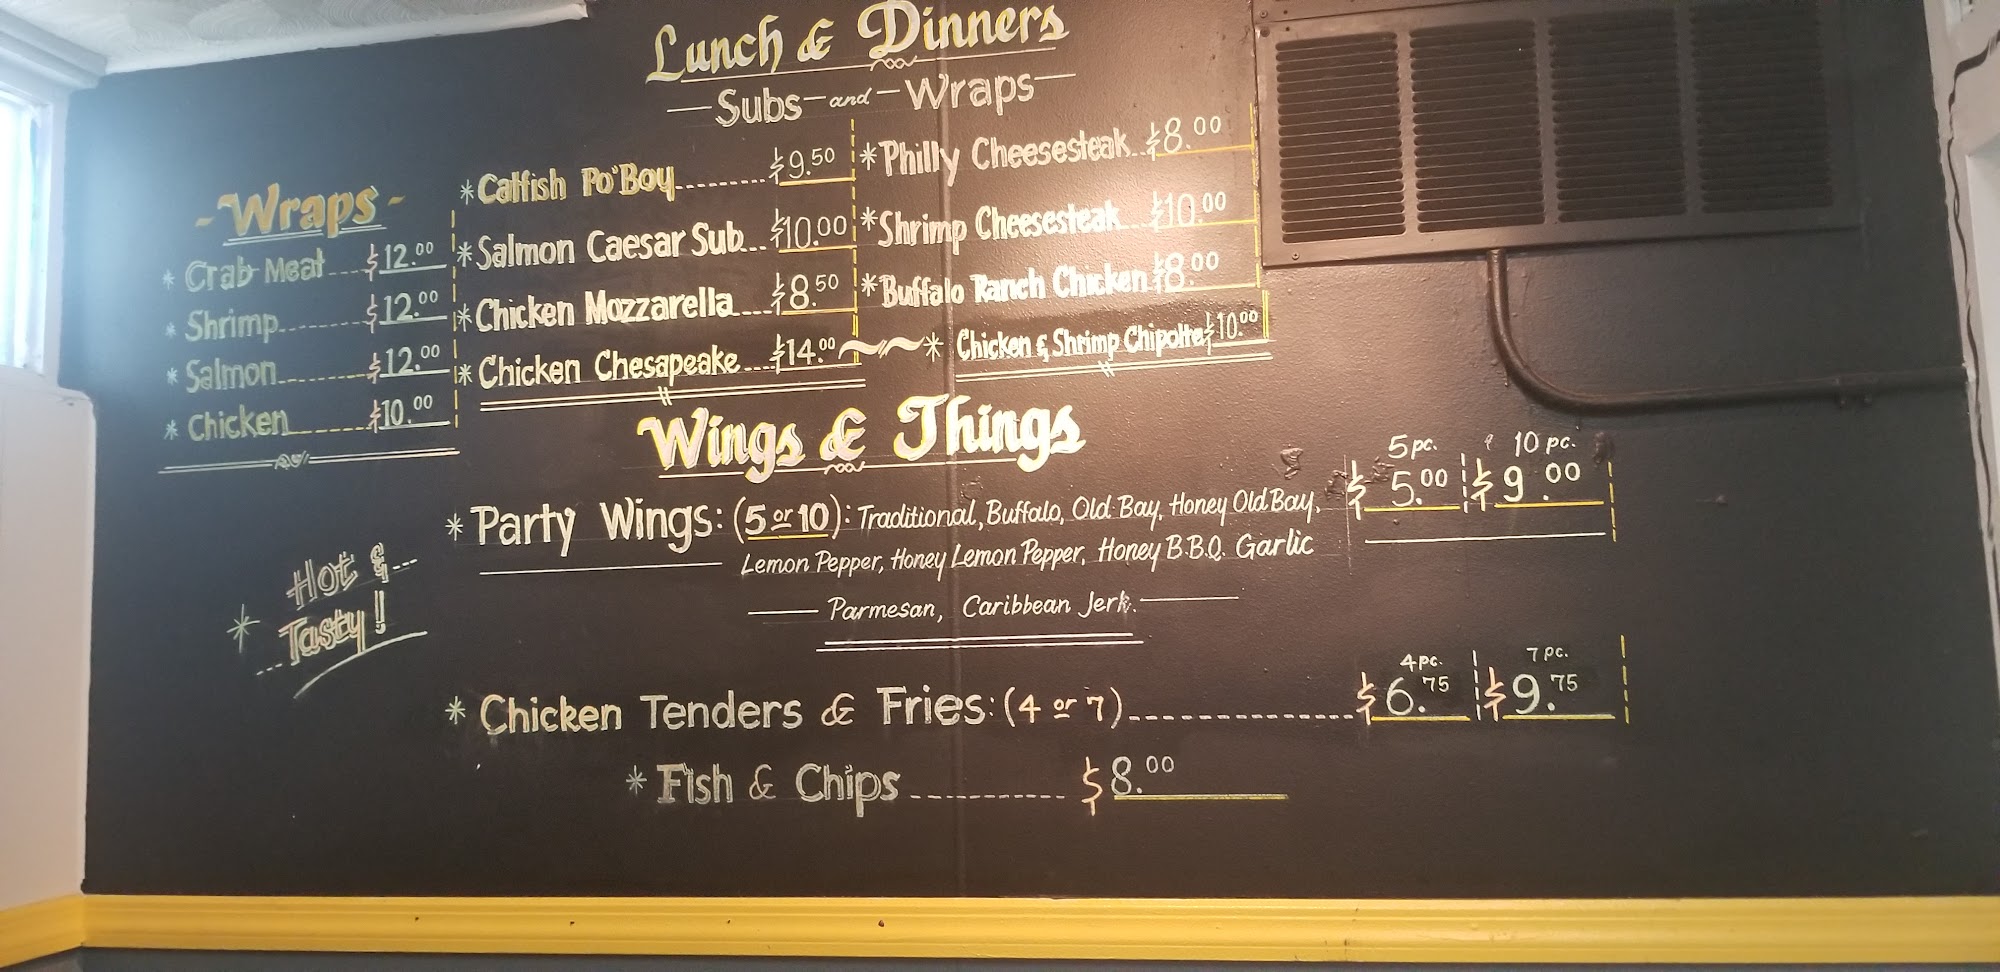 Lunch & Dinners
Subs and Wraps
- Wraps -
* Crab Meat $12.00
* Shrimp $12.00
* Salmon $12.00
* Chicken $10.00
* Catfish Po'Boy $9.50
* Salmon Caesar Sub $10.00
* Chicken Mozzarella $8.50
* Chicken Chesapeake $14.00
* Philly Cheesesteak $8.00
* Shrimp Cheesesteak $10.00
* Buffalo Ranch Chicken $8.00
* Chicken & Shrimp Chipotle $10.00
Wings & Things
5 pc. 10 pc.
* Party Wings: (5 or 10): Traditional, Buffalo, Old Bay, Honey Old Bay, $5.00 $9.00
Lemon Pepper, Honey Lemon Pepper, Honey B.B.Q. Garlic
Parmesan, Caribbean Jerk.
* Hot &
Tasty!
4 pc. 7 pc.
* Chicken Tenders & Fries: (4 or 7) $6.75 $9.75
* Fish & Chips $8.00